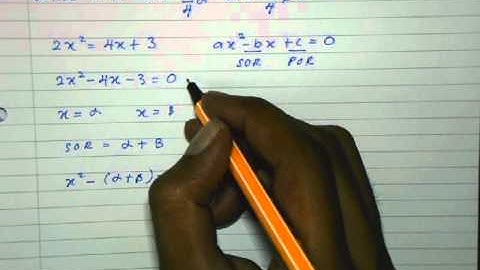 4 4
2x² = 4x + 3 ax² - bx + c = 0
SOR POR
2x² - 4x - 3 = 0
x = α x = β
SOR = α + β
x² - (α + β)